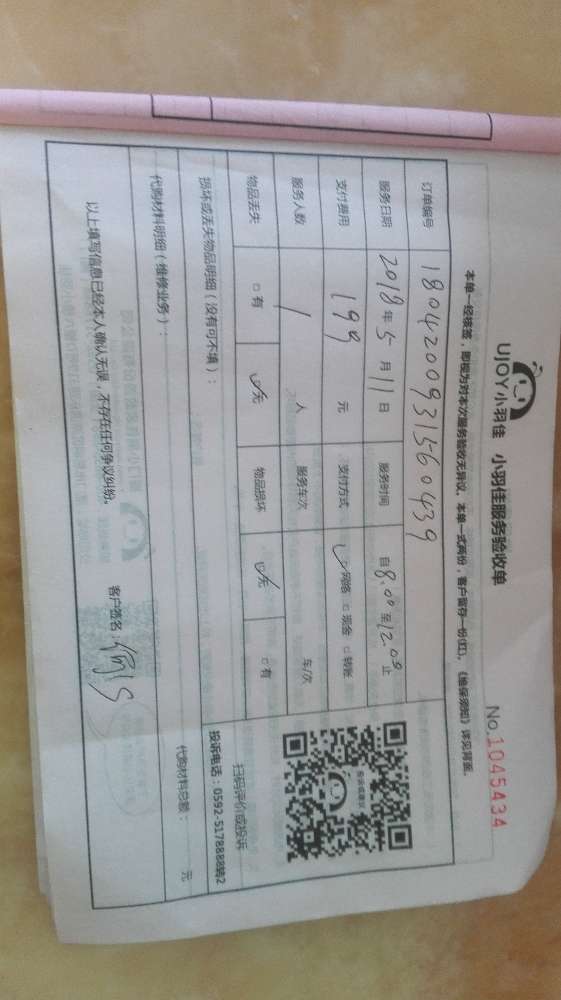 UJOY小羽佳 小羽佳服务验收单
No.1045434
本单一经核签，即视为对本次服务验收无异议，本单一式两份，客户留存一份(红)，《维保须知》详见背面。
订单编号 1804200931560439
服务日期 2018年5月11日 服务时间 自8.00至12.00止
支付费用 199元 支付方式 ☑网络 □现金 □转账
服务人数 1人 服务车次 车/次
物品丢失 □有 ☑无 物品损坏 ☑无 □有
扫码评价或投诉
投诉电话：0592-5178888转2
损坏或丢失物品明细（没有可不填）：
代购材料明细（维修业务）：
代购材料总额： 元
以上填写信息已经本人确认无误，不存在任何争议纠纷。
客户签名：